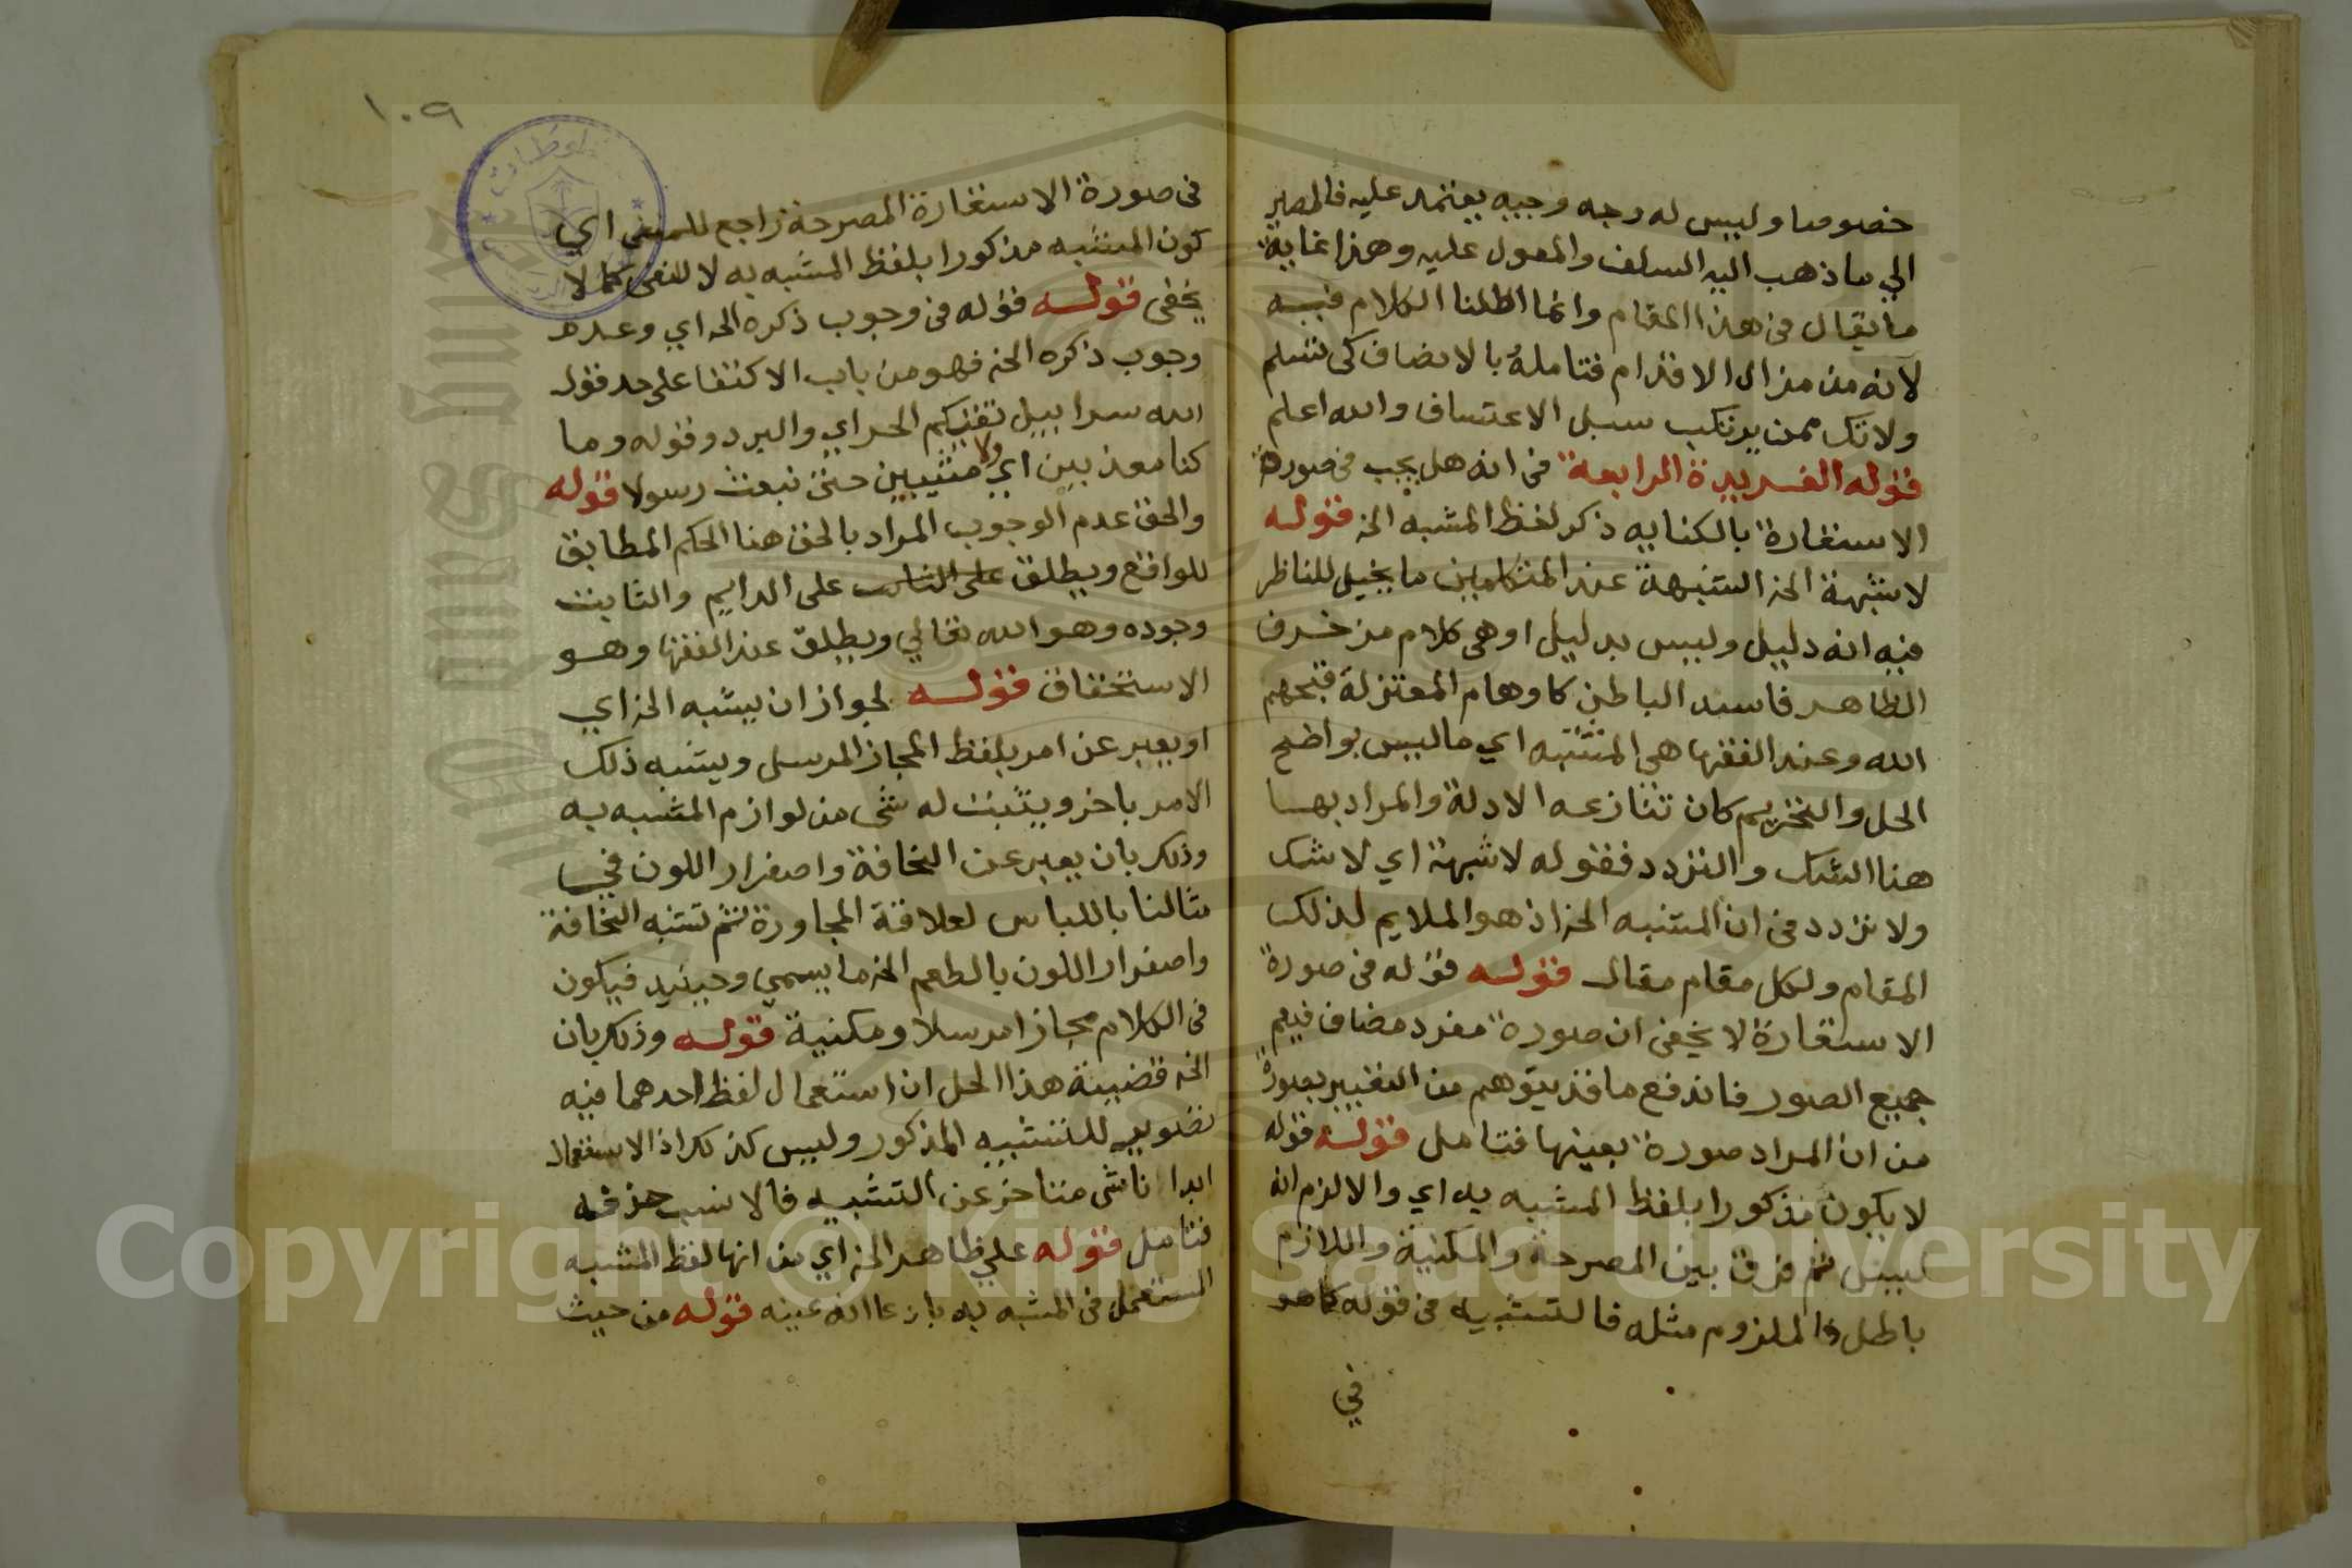 خصوصا وليس له وجه وجيه يعتمد عليه فالمصير
الي ما ذهب اليه السلف والمعول عليه وهذا غاية
ما يقال في هذا المقام وانما اطلنا الكلام فيه
لانه من مزال الاقدام فتامله بالانصاف كي تسلم
ولا تك ممن يرتكب سبل الاعتساف والله اعلم
قوله الفريدة الرابعة في انه هل يجب في صورة
الاستعارة بالكنايه ذكر لفظ المشبه الخ قوله
لا شبهة الخ الشبهة عند المتكلمين ما يخيل للناظر
فيه انه دليل وليس بدليل او هي كلام مزخرف
الظاهر فاسد الباطن كاوهام المعتزلة قبحهم
الله وعند الفقها هي المشتبه اي ما ليس بواضح
الحل والتحريم كان تتنازعه الادلة والمراد بها
هنا الشك والتردد فقوله لا شبهة اي لا شك
ولا تردد في ان المشبه الخ اذ هو الملايم لذلك
المقام ولكل مقام مقال قوله قوله في صورة
الاستعارة لا يخفى ان صورة مفرد مضاف فيعم
جميع الصور فاندفع ما قد يتوهم من التعبير بصورة
من ان المراد صورة بعينها فتامل قوله قوله
لا يكون مذكورا بلفظ المشبه به اي والا لزم انه
ليس ثم فرق بين المصرحة والمكنية واللازم
باطل فالملزوم مثله فالتشبيه في قوله كما هو
في
١٠٩
في صورة الاستعارة المصرحة راجع للمنفى اي
كون المشبه مذكورا بلفظ المشبه به لا للنفى كما لا
يخفى قوله قوله في وجوب ذكره الخ اي وعدم
وجوب ذكره الخ فهو من باب الاكتفا على حد قول
الله سرابيل تقيكم الحر اي والبرد وقوله وما
كنا معذبين اي ولا مثيبين حتى نبعث رسولا قوله
والحق عدم الوجوب المراد بالحق هنا الحكم المطابق
للواقع ويطلق على الدايم والثابت
وجوده وهو الله تعالي ويطلق عند الفقها وهو
الاستحقاق قوله لجواز ان يشبه الخ اي
او يعبر عن امر بلفظ المجاز المرسل ويشبه ذلك
الامر باخر ويثبت له شى من لوازم المشبه به
وذلك بان يعبر عن النحافة واصفرار اللون في
مثالنا باللباس لعلاقة المجاورة ثم تشبه النحافة
واصفرار اللون بالطعم الخ ما يسمي وحينيذ فيكون
في الكلام مجازا مرسلا ومكنية قوله وذلك بان
الخ قضية هذا الحل ان استعمال لفظ احدهما فيه
تصوير للتشبيه المذكور وليس كذلك اذ الاستعمال
ابدا ناشى متاخر عن التشبيه فالانسب حذفه
فتامل قوله علي ظاهر الخ اي من انها لفظ المشبه
المستعمل في المشبه به بادعا انه عينه قوله من حيث
Copyright © King Saud University